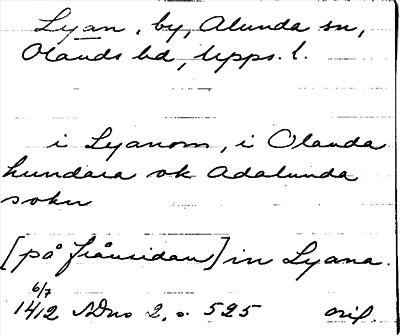 Lyan, by, Alunda sn,
Olands hd, Upps. l.
i Lyanom, i Olanda
hundara ok Adalunda
sokn
[på frånsidan] in Lyana.
6/7
1412 SDns 2, s. 525 orig.